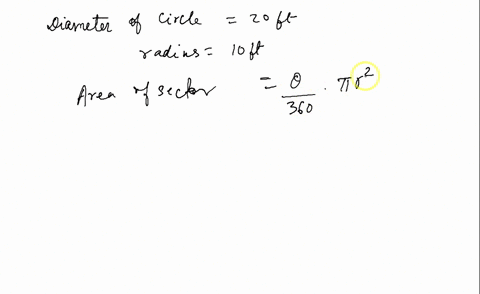 Diameter of circle = 20 ft
radius = 10 ft
Area of sector = θ/360 . πr²